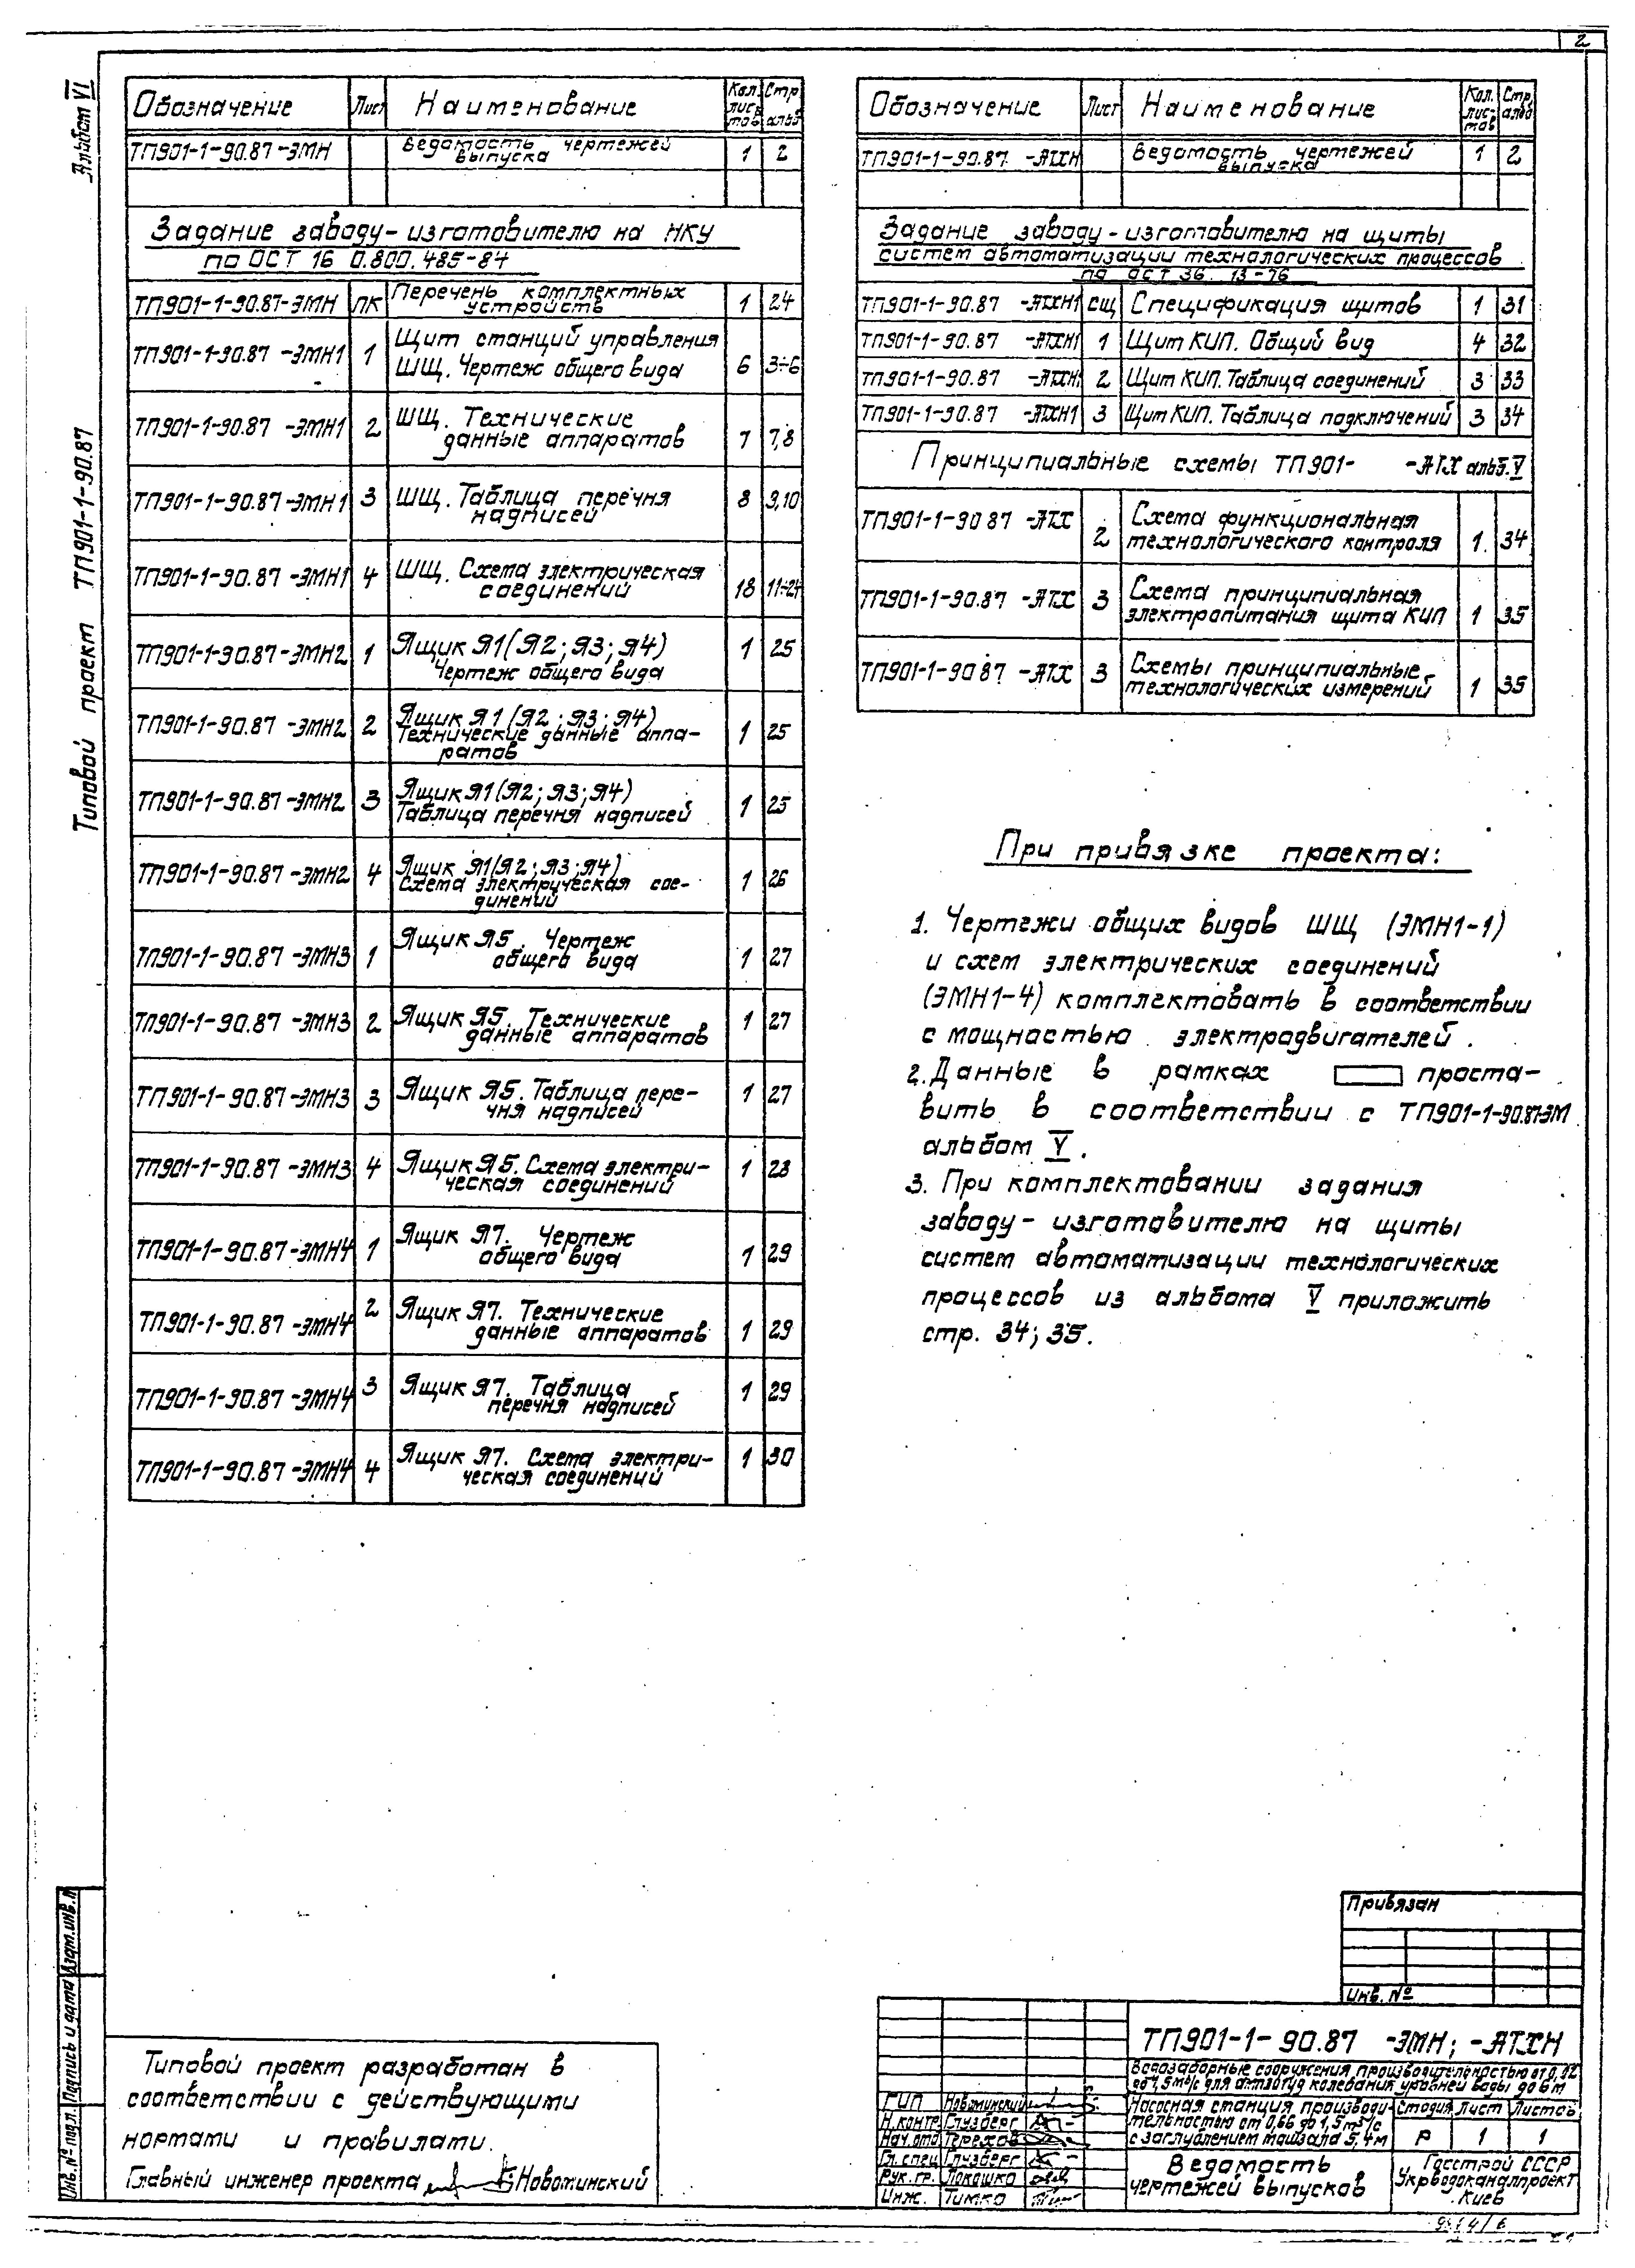 2
Альбом VI
Типовой проект ТП901-1-90.87
Обозначение Лист Наименование Кол. листов Стр. альб.
ТП901-1-90.87-ЭМН Ведомость чертежей выпуска 1 2
Задание заводу-изготовителю на НКУ
по ОСТ 16 0.800.485-84
ТП901-1-90.87-ЭМН ПК Перечень комплектных устройств 1 24
ТП901-1-90.87-ЭМН1 1 Щит станций управления ШЩ. Чертеж общего вида 6 3÷6
ТП901-1-90.87-ЭМН1 2 ШЩ. Технические данные аппаратов 7 7,8
ТП901-1-90.87-ЭМН1 3 ШЩ. Таблица перечня надписей 8 9,10
ТП901-1-90.87-ЭМН1 4 ШЩ. Схема электрическая соединений 18 11÷24
ТП901-1-90.87-ЭМН2 1 Ящик Я1(Я2;Я3;Я4) Чертеж общего вида 1 25
ТП901-1-90.87-ЭМН2 2 Ящик Я1(Я2;Я3;Я4) Технические данные аппаратов 1 25
ТП901-1-90.87-ЭМН2 3 Ящик Я1(Я2;Я3;Я4) Таблица перечня надписей 1 25
ТП901-1-90.87-ЭМН2 4 Ящик Я1(Я2;Я3;Я4) Схема электрическая соединений 1 26
ТП901-1-90.87-ЭМН3 1 Ящик Я5. Чертеж общего вида 1 27
ТП901-1-90.87-ЭМН3 2 Ящик Я5. Технические данные аппаратов 1 27
ТП901-1-90.87-ЭМН3 3 Ящик Я5. Таблица перечня надписей 1 27
ТП901-1-90.87-ЭМН3 4 Ящик Я5. Схема электрическая соединений 1 28
ТП901-1-90.87-ЭМН4 1 Ящик Я7. Чертеж общего вида 1 29
ТП901-1-90.87-ЭМН4 2 Ящик Я7. Технические данные аппаратов 1 29
ТП901-1-90.87-ЭМН4 3 Ящик Я7. Таблица перечня надписей 1 29
ТП901-1-90.87-ЭМН4 4 Ящик Я7. Схема электрическая соединений 1 30
Обозначение Лист Наименование Кол. листов Стр. альб
ТП901-1-90.87 -АТХН Ведомость чертежей выпуска 1 2
Задание заводу-изготовителю на щиты
систем автоматизации технологических процессов
по ОСТ 36.13-76
ТП901-1-90.87 -АТХН1 СЩ Спецификация щитов 1 31
ТП901-1-90.87 -АТХН1 1 Щит КИП. Общий вид 4 32
ТП901-1-90.87 -АТХН1 2 Щит КИП. Таблица соединений 3 33
ТП901-1-90.87 -АТХН1 3 Щит КИП. Таблица подключений 3 34
Принципиальные схемы ТП901- -АТХ альб. V
ТП901-1-90 87 -АТХ 2 Схема функциональная технологического контроля 1 34
ТП901-1-90.87 -АТХ 3 Схема принципиальная электропитания щита КИП 1 35
ТП901-1-90 87 -АТХ 3 Схемы принципиальные технологических измерений 1 35
При привязке проекта:
1. Чертежи общих видов ШЩ (ЭМН1-1)
и схем электрических соединений
(ЭМН1-4) комплектовать в соответствии
с мощностью электродвигателей.
2. Данные в рамках проста-
вить в соответствии с ТП901-1-90.87-ЭМ
альбом V.
3. При комплектовании задания
заводу-изготовителю на щиты
систем автоматизации технологических
процессов из альбома V приложить
стр. 34; 35.
Привязан
Инв. №
Инв.№ подл. Подпись и дата Взам.инв.№
Типовой проект разработан в
соответствии с действующими
нормами и правилами.
Главный инженер проекта Новоминский
ТП901-1-90.87 -ЭМН; -АТХН
Водозаборные сооружения производительностью от 0,02
до 1,5 м³/с для амплитуд колебания уровней воды до 6 м
ГИП Новоминский
Н.контр. Глузберг
Нач.отд Терехов
Гл.спец Глузберг
Рук.гр. Локошко
Инж. Тимко
Насосная станция производи-
тельностью от 0,66 до 1,5 м³/с
с заглублением машзала 5,4м
Стадия Лист Листов
Р 1 1
Ведомость
чертежей выпусков
Госстрой СССР
Укрводоканалпроект
Киев